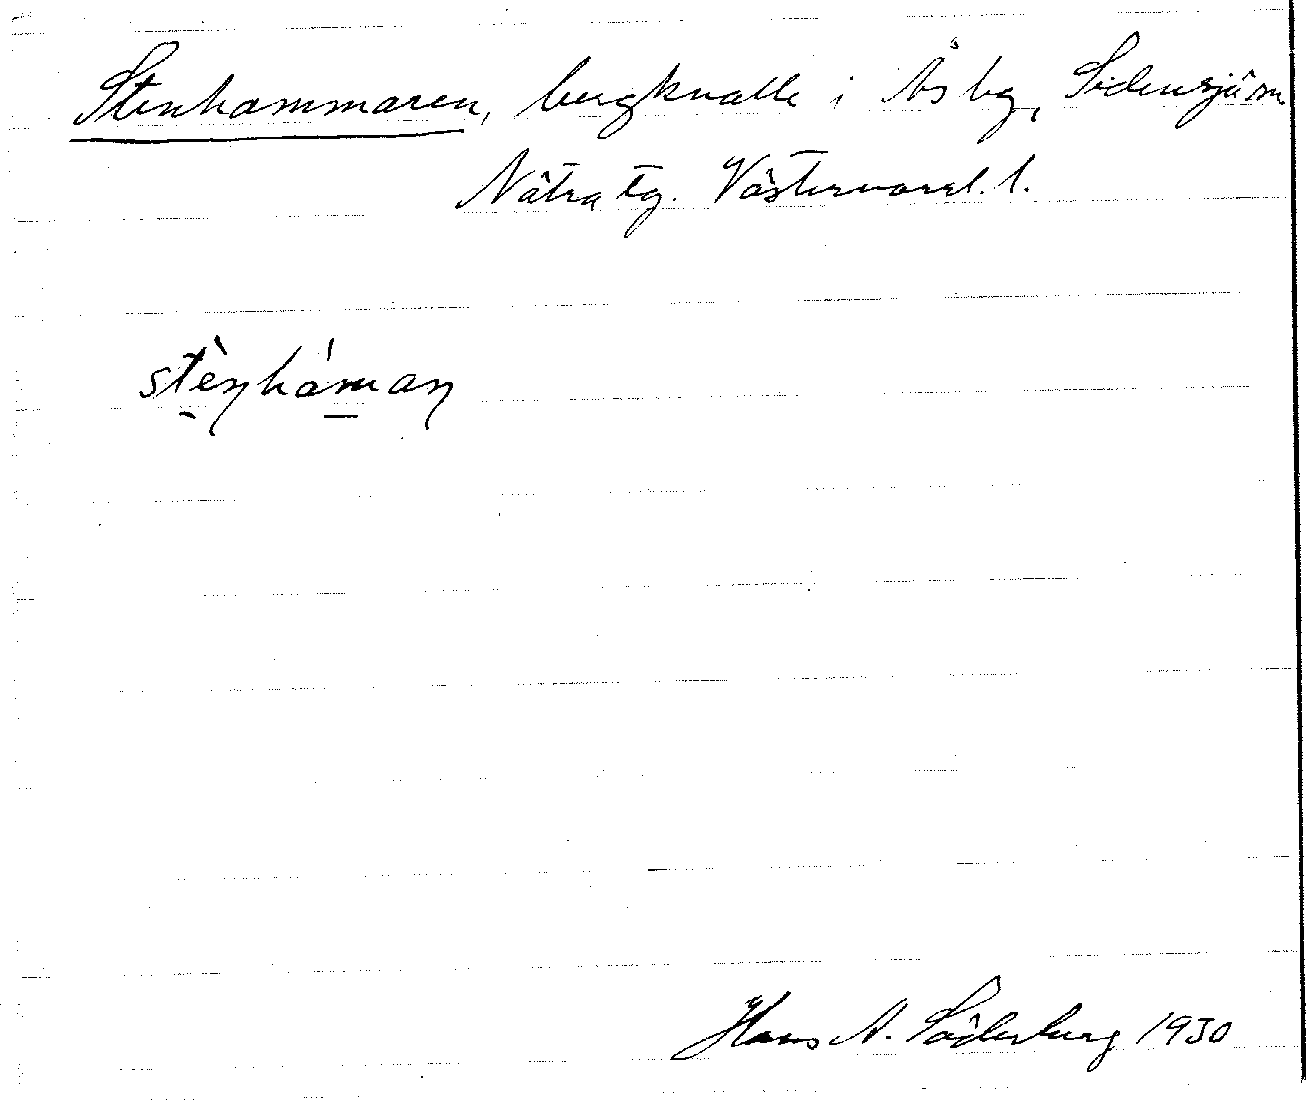 Stenhammaren, bergknalle i Ås by, Sidensjö sn
Nätra tg. Västernorrl. l.
stènháman
Hans A. Söderberg 1930